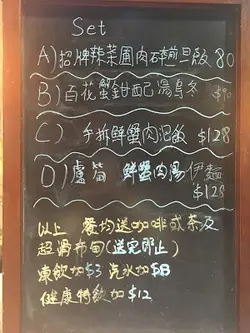 Set
A) 招牌辣菜圃肉碎煎旦飯 80
B) 百花蟹鉗配湯烏冬 $90
C) 手拆鮮蟹肉泡飯 $128
D) 露筍 鮮蟹肉湯伊麵 $128
以上 餐均送咖啡或茶及
超滑布甸(送完即止)
凍飲加$3 汽水加$8
健康特飲加$12